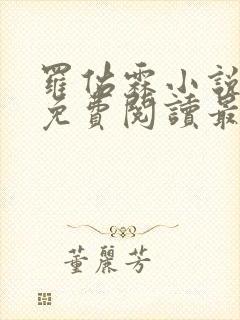 羅佑霖小說
免費閱讀最
董麗芳